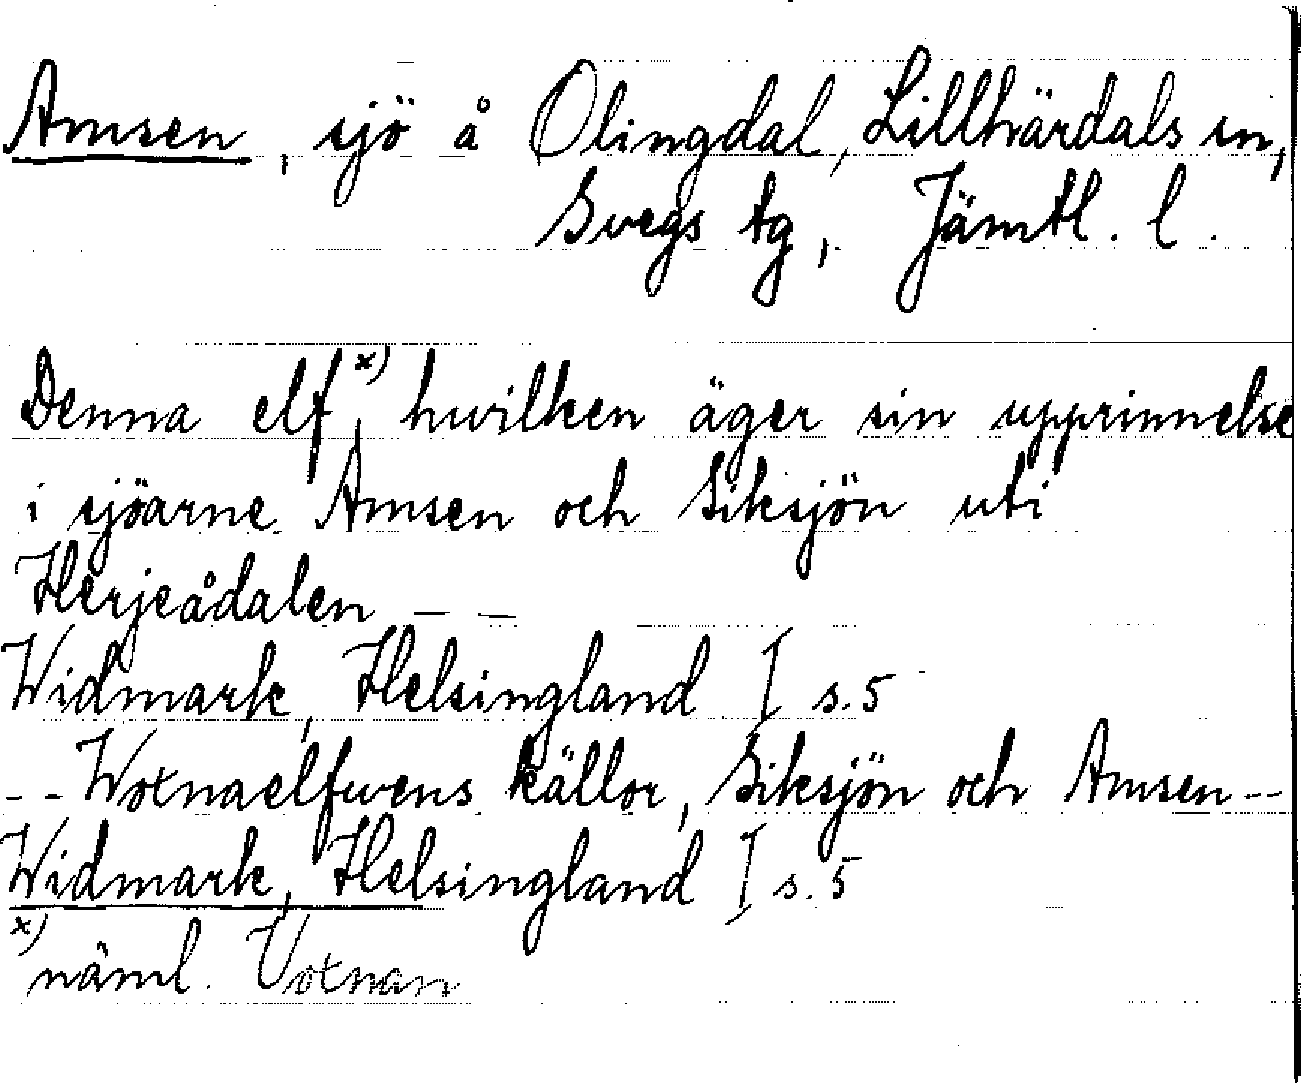 Amsen, sjö å Olingdal, Lillhärdals sn,
Svegs tg, Jämtl. l.
Denna elf x), hvilken äger sin upprinnelse
i sjöarne Amsen och Siksjön uti
Herjeådalen – –
Widmark, Helsingland I s. 5
– – Woxnaelfvens källor, Siksjön och Amsen – –
Widmark, Helsingland I s. 5
x) näml. Voxnan